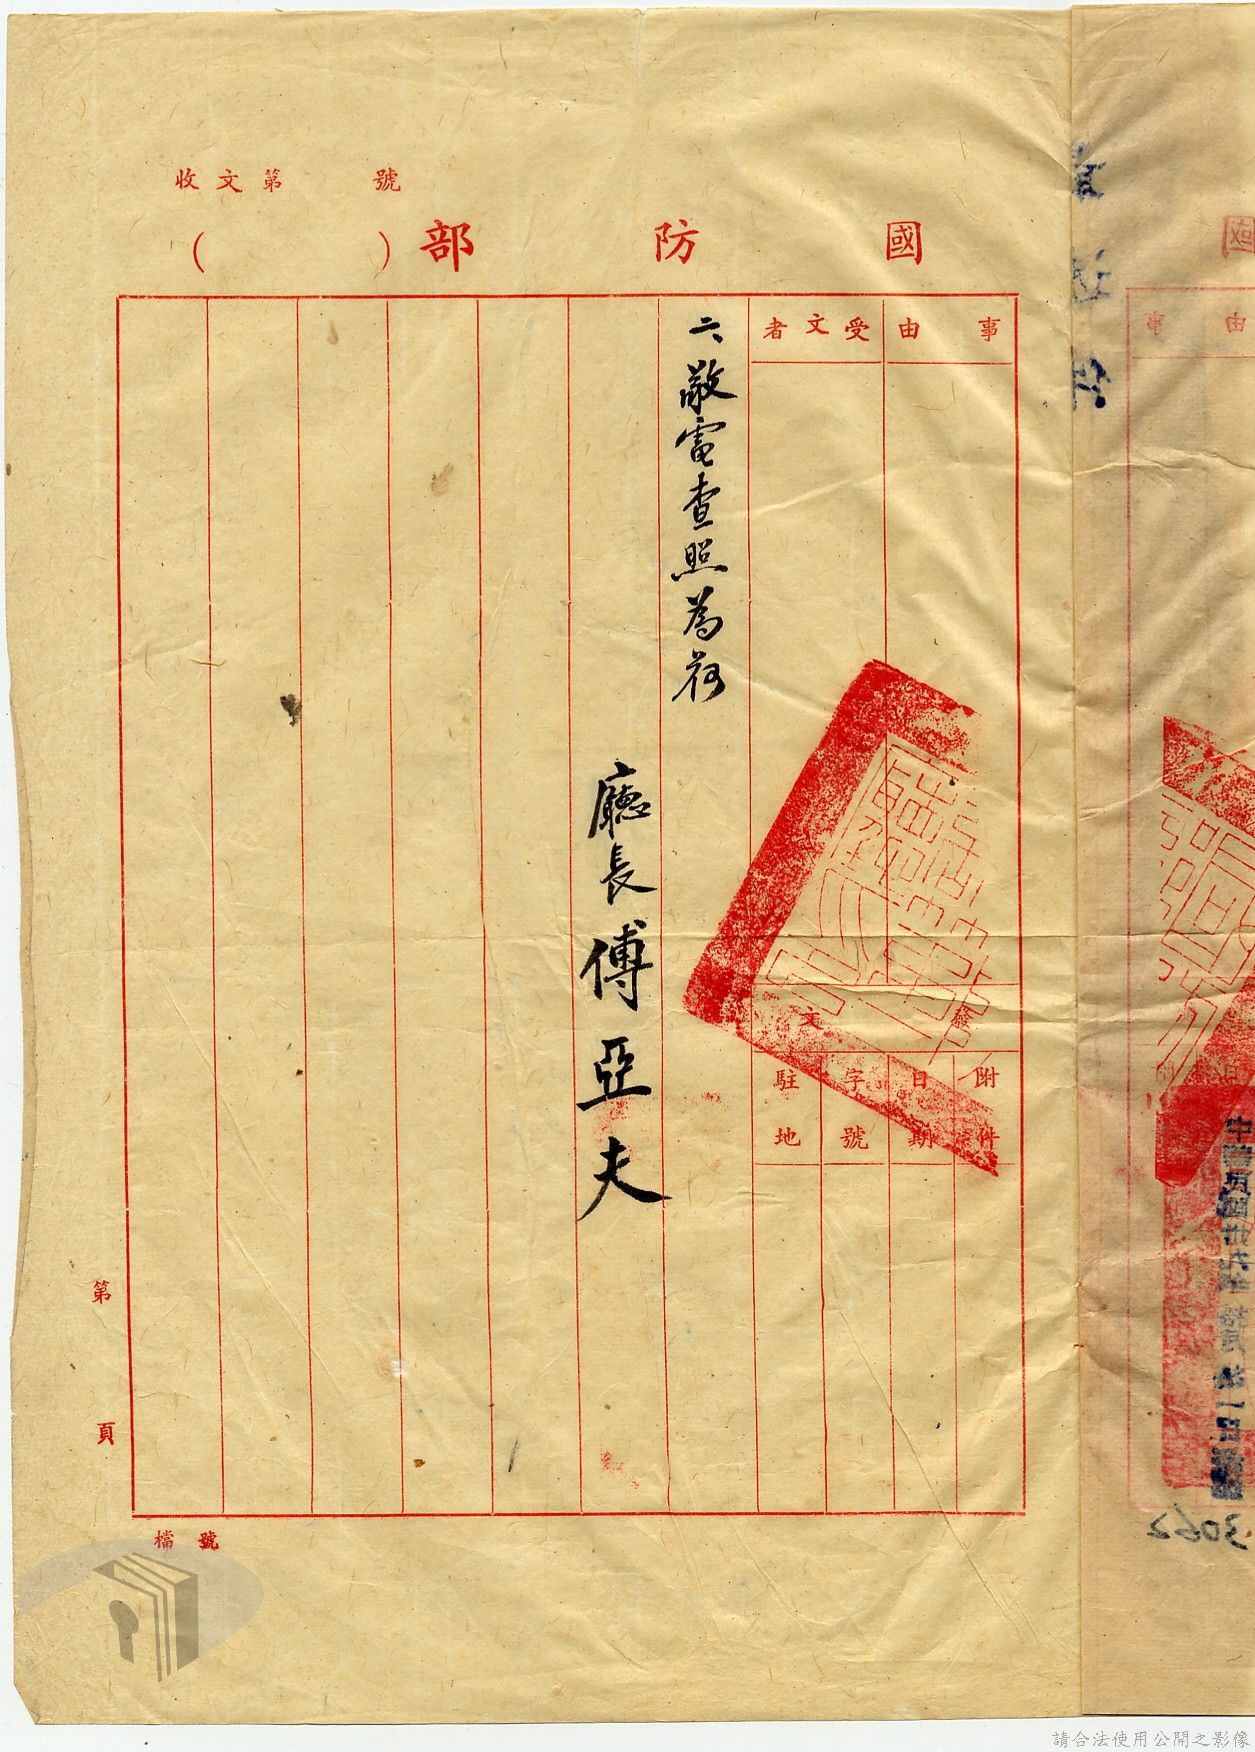 收文第　號
國防部（　）
事由
受文者
發文
附件
日期
字號
駐地
二、敬電查照為荷
廳長傅亞夫
第　頁
檔號
3062
請合法使用公開之影像